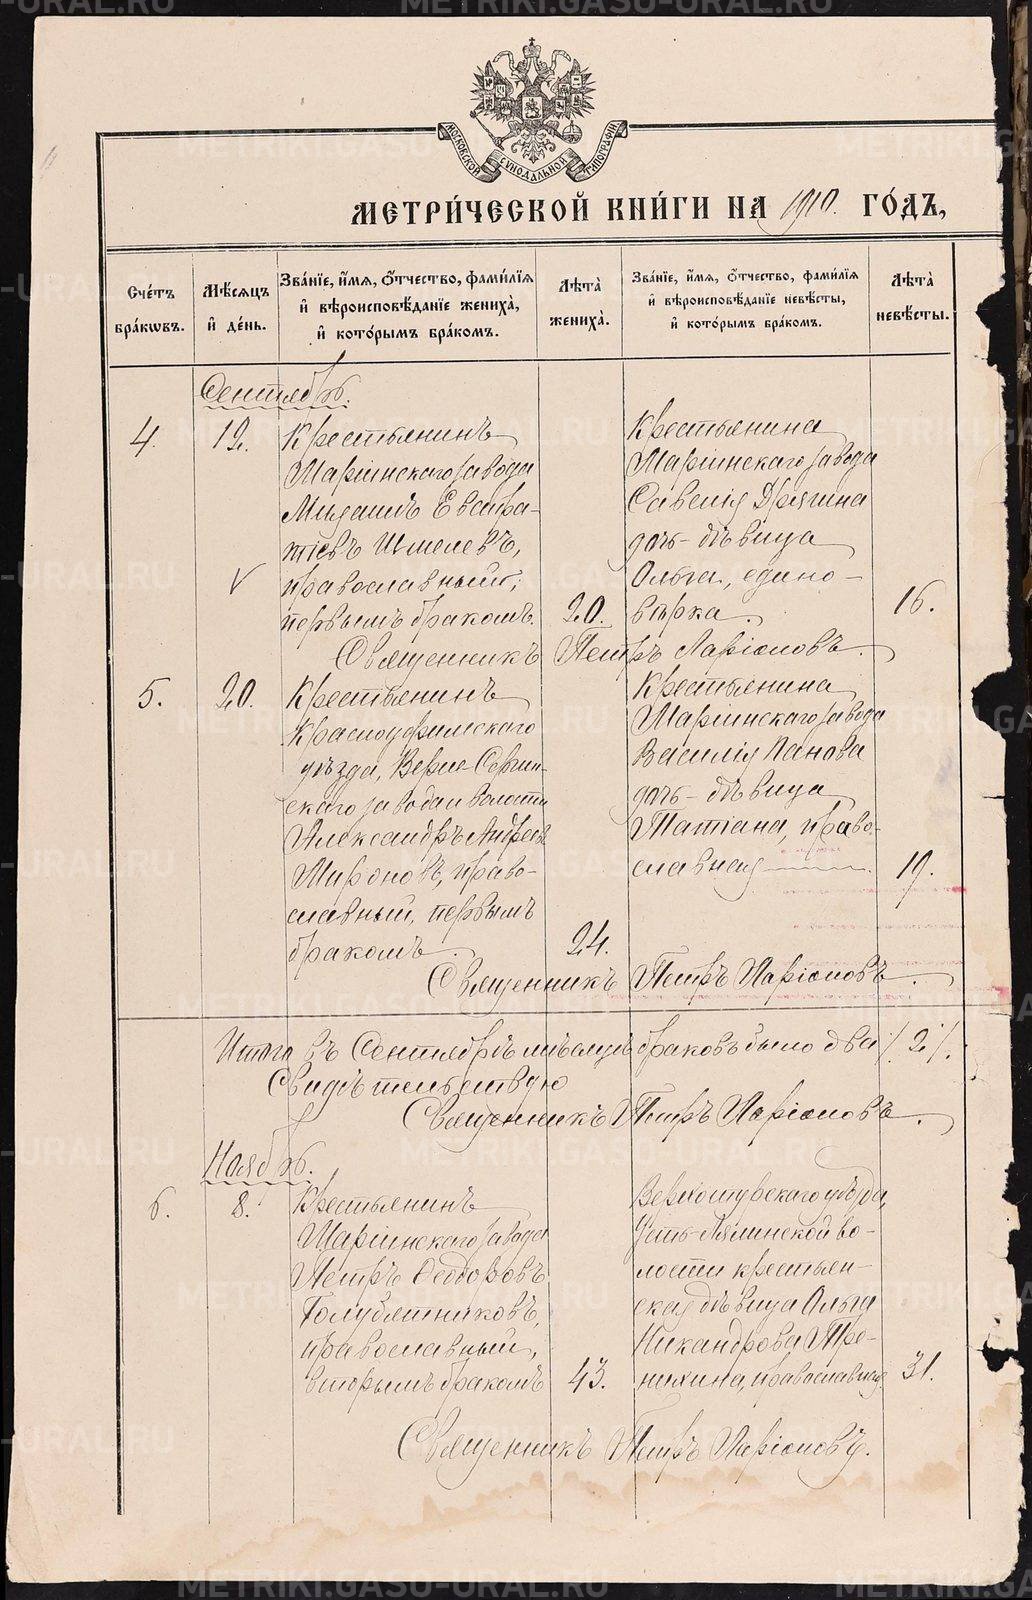 МОСКОВСКОЙ СѴНОДАЛЬНОЙ ТИПОГРАФІИ
МЕТРИ́ЧЕСКОЙ КНИ́ГИ НА 1910. ГО́ДЪ,
Счétъ бра́кѡвъ.
Мѣ́сяцъ и҆ де́нь.
Зва́нїе, и҆́мѧ, ѻ҆́тчество, фами́лїѧ и҆ вѣроисповѣ́данїе жениха̀, и҆ кото́рымъ бра́комъ.
Лѣ́та жениха̀.
Зва́нїе, и҆́мѧ, ѻ҆́тчество, фами́лїѧ и҆ вѣроисповѣ́данїе невѣ́сты, и҆ кото́рымъ бра́комъ.
Лѣ́та невѣ́сты.
Сентябрь.
4. 12. Крестьянинъ
Маріинскаго завода
Евстра-
тіевъ Шмелевъ,
православный,
первымъ бракомъ. 20.
Крестьянина
Маріинскаго завода
Савелія Дрягина
дочь-дѣвица
Ольга, едино-
вѣрка. 16.
Священникъ Петръ Ларіоновъ.
5. 20. Крестьянинъ
Красноуфимскаго
уѣзда, Верхне-Сергин-
скаго завода и волости
Александръ Андреевъ
Мироновъ, право-
славный, первымъ
бракомъ. 24.
Крестьянина
Маріинскаго завода
Василія Панова
дочь-дѣвица
Татіана, право-
славная 19.
Священникъ Петръ Ларіоновъ.
Итого въ Сентябрѣ мѣсяцѣ браковъ было два /2/.
Свидѣтельствую
Священникъ Петръ Ларіоновъ.
Ноябрь.
6. 8. Крестьянинъ
Маріинскаго завода
Петръ Ѳеодоровъ
Голубятниковъ,
православный,
вторымъ бракомъ 43.
Верхотурскаго уѣзда,
Усть-Лялинской во-
лости крестьян-
ская дѣвица Ольга
Никандрова Тро-
нихина, православная. 31.
Священникъ Петръ Ларіоновъ.
METRIKI.GASU-URAL.RU